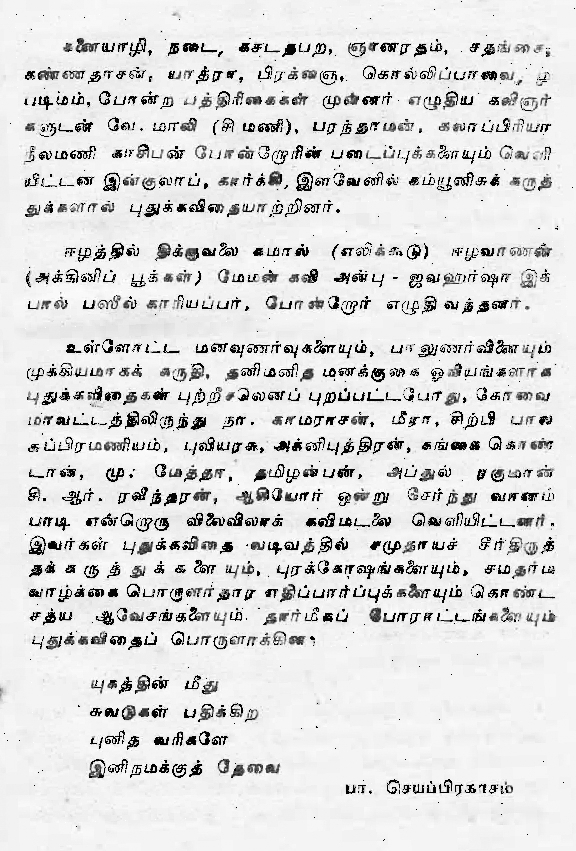 கணையாழி, நடை, கசடதபற, ஞானரதம், சதங்கை,
கண்ணதாசன், யாத்ரா, பிரக்ஞை, கொல்லிப்பாவை, ழ
படிமம், போன்ற பத்திரிகைகள் முன்னர் எழுதிய கவிஞர்
களுடன் வே. மாலி (சி மணி), பரந்தாமன், கலாப்பிரியா
நீலமணி காசிபன் போன்றோரின் படைப்புக்களையும் வெளி
யிட்டன இன்குலாப், கார்க்கி, இளவேனில் கம்யூனிசுக் கருத்
துக்களால் புதுக்கவிதையாற்றினர்.
ஈழத்தில் திக்குவலை கமால் (எலிக்கூடு) ஈழவாணன்
(அக்கினிப் பூக்கள்) மேமன் கவி அன்பு - ஜவஹர்ஷா இக்
பால் பஸீல் காரியப்பர், போன்றோர் எழுதி வந்தனர்.
உள்ளோட்ட மனவுணர்வுகளையும், பாலுணர்வினையும்
முக்கியமாகக் கருதி, தனிமனித மனக்குகை ஓவியங்களாக
புதுக்கவிதைகள் புற்றீசலெனப் புறப்பட்டபோது, கோவை
மாவட்டத்திலிருந்து நா. காமராசன், மீரா, சிற்பி பால
சுப்பிரமணியம், புவியரசு, அக்னிபுத்திரன், கங்கை கொண்
டான், மு. மேத்தா, தமிழன்பன், அப்துல் ரகுமான்
சி. ஆர். ரவீந்தரன், ஆகியோர் ஒன்று சேர்ந்து வானம்
பாடி என்றொரு விலைவிலாக் கவிமடலை வெளியிட்டனர்.
இவர்கள் புதுக்கவிதை வடிவத்தில் சமுதாயச் சீர்திருத்
தக் கருத்துக்களையும், புரக்கோஷங்களையும், சமதர்ம
வாழ்க்கை பொருளாதார எதிப்பார்ப்புக்களையும் கொண்ட
சத்ய ஆவேசங்களையும் தார்மீகப் போராட்டங்களையும்
புதுக்கவிதைப் பொருளாக்கின:
யுகத்தின் மீது
சுவடுகள் பதிக்கிற
புனித வரிகளே
இனிநமக்குத் தேவை
பா. செயப்பிரகாசம்